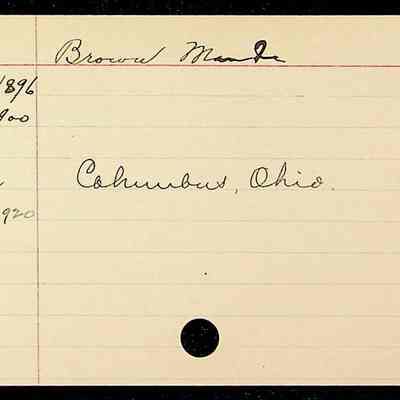 Brown Maude
1896
900
Columbus, Ohio.
1920